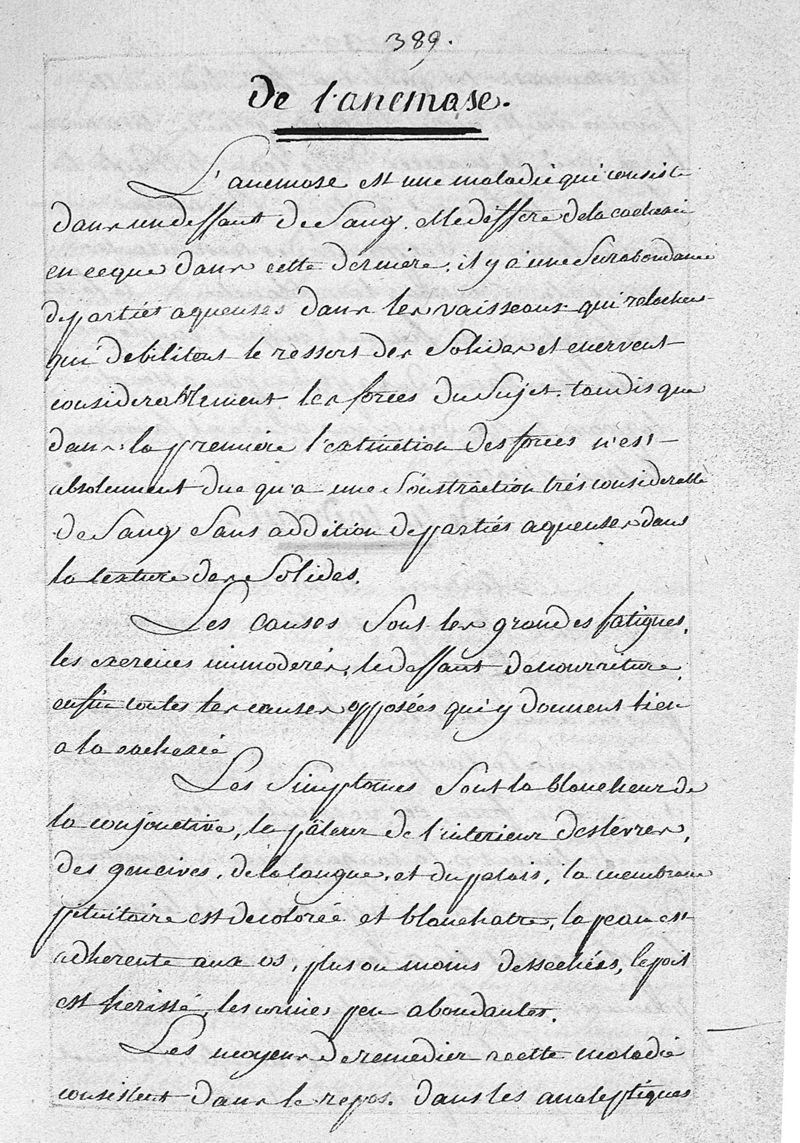 389.
De l'anemose.
L'anemose est une maladie qui consiste
dans un deffaut de Sang. Elle differe de la cachexie
en ceque dans cette derniere, il y a une Surabondance
de partiés aqueuses dans les vaisseaux qui relachent
qui debilitent le ressort des Solides et enervent
considerablement les forces du Sujet. tandis que
dans la premiere l'extinction des forces n'est
absolument due qu'a une Soustraction trés considerable
de Sang Sans addition de partiés aqueuses dans
la texture des Solides.
Les causes Sont les grandes fatigues,
les exercices immoderés, le deffaut de nourriture
enfin toutes les causes opposées qui y donnent lieu
a la cachexié
Les Simptomes Sont la blancheur de
la conjonctive, la pâleur de l'interieur des lévres,
des gencives, de la langue, et du palais, la membrane
pituitaire est decolorée et blanchatre, la peau est
adherente aux os, plus ou moins dessechés, le poil
est hérissé, les urines peu abondantes.
Les moyens de remedier a cette maladié
consistent dans le repos. dans les analeptiques